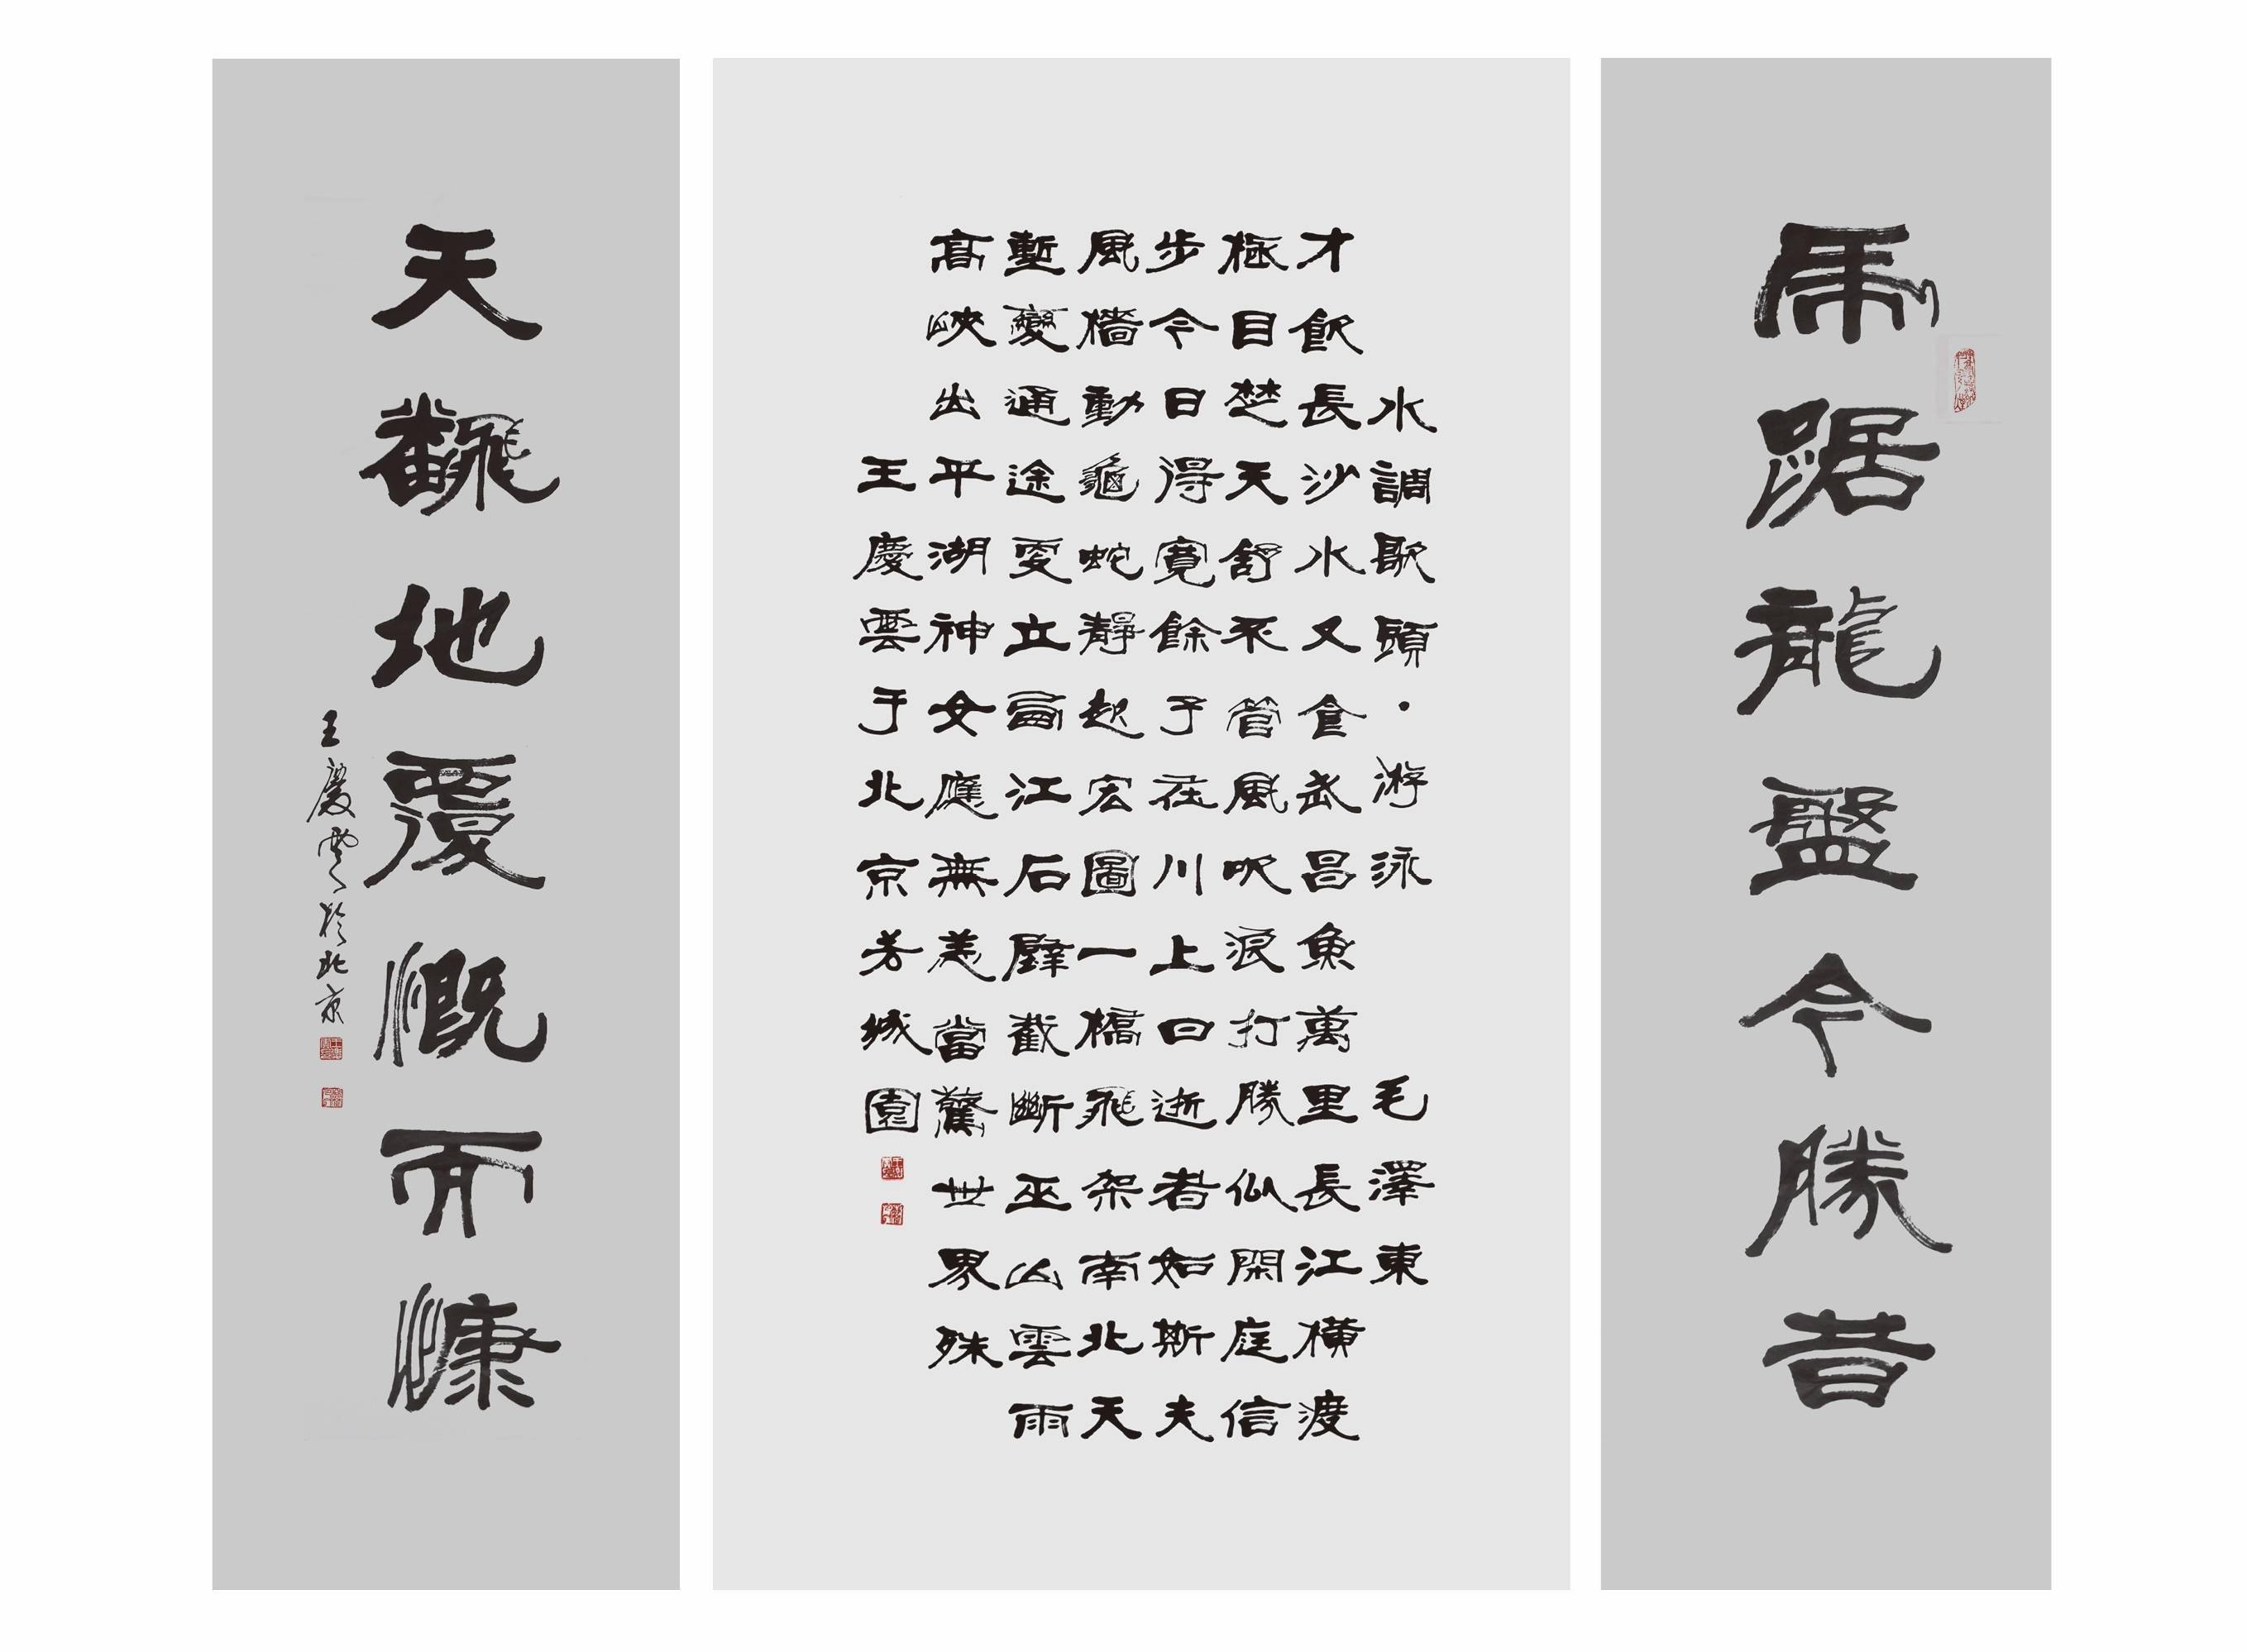 虎踞龍盤今勝昔
水調歌頭·游泳 毛澤東
才飲長沙水又食武昌魚萬里長江橫渡
極目楚天舒不管風吹浪打勝似閑庭信
步今日得寬餘子在川上曰逝者如斯夫
風檣動龜蛇靜起宏圖一橋飛架南北天
塹變通途更立西江石壁截斷巫山雲雨
高峽出平湖神女應無恙當驚世界殊
王慶雲于北京芳城園
天飜地覆慨而慷
王慶雲於北京